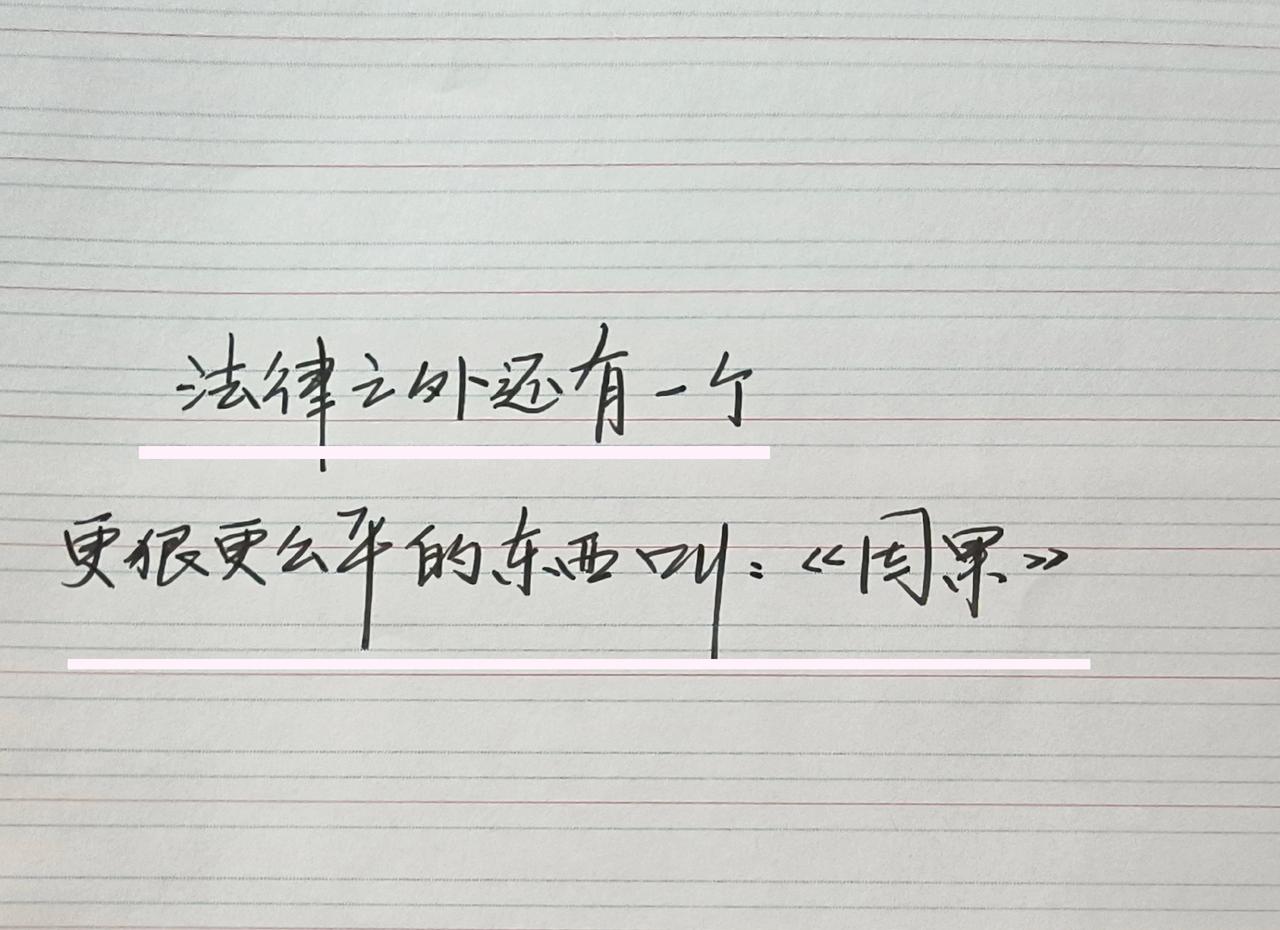 法律之外还有一个
更狠更公平的东西叫：《因果》